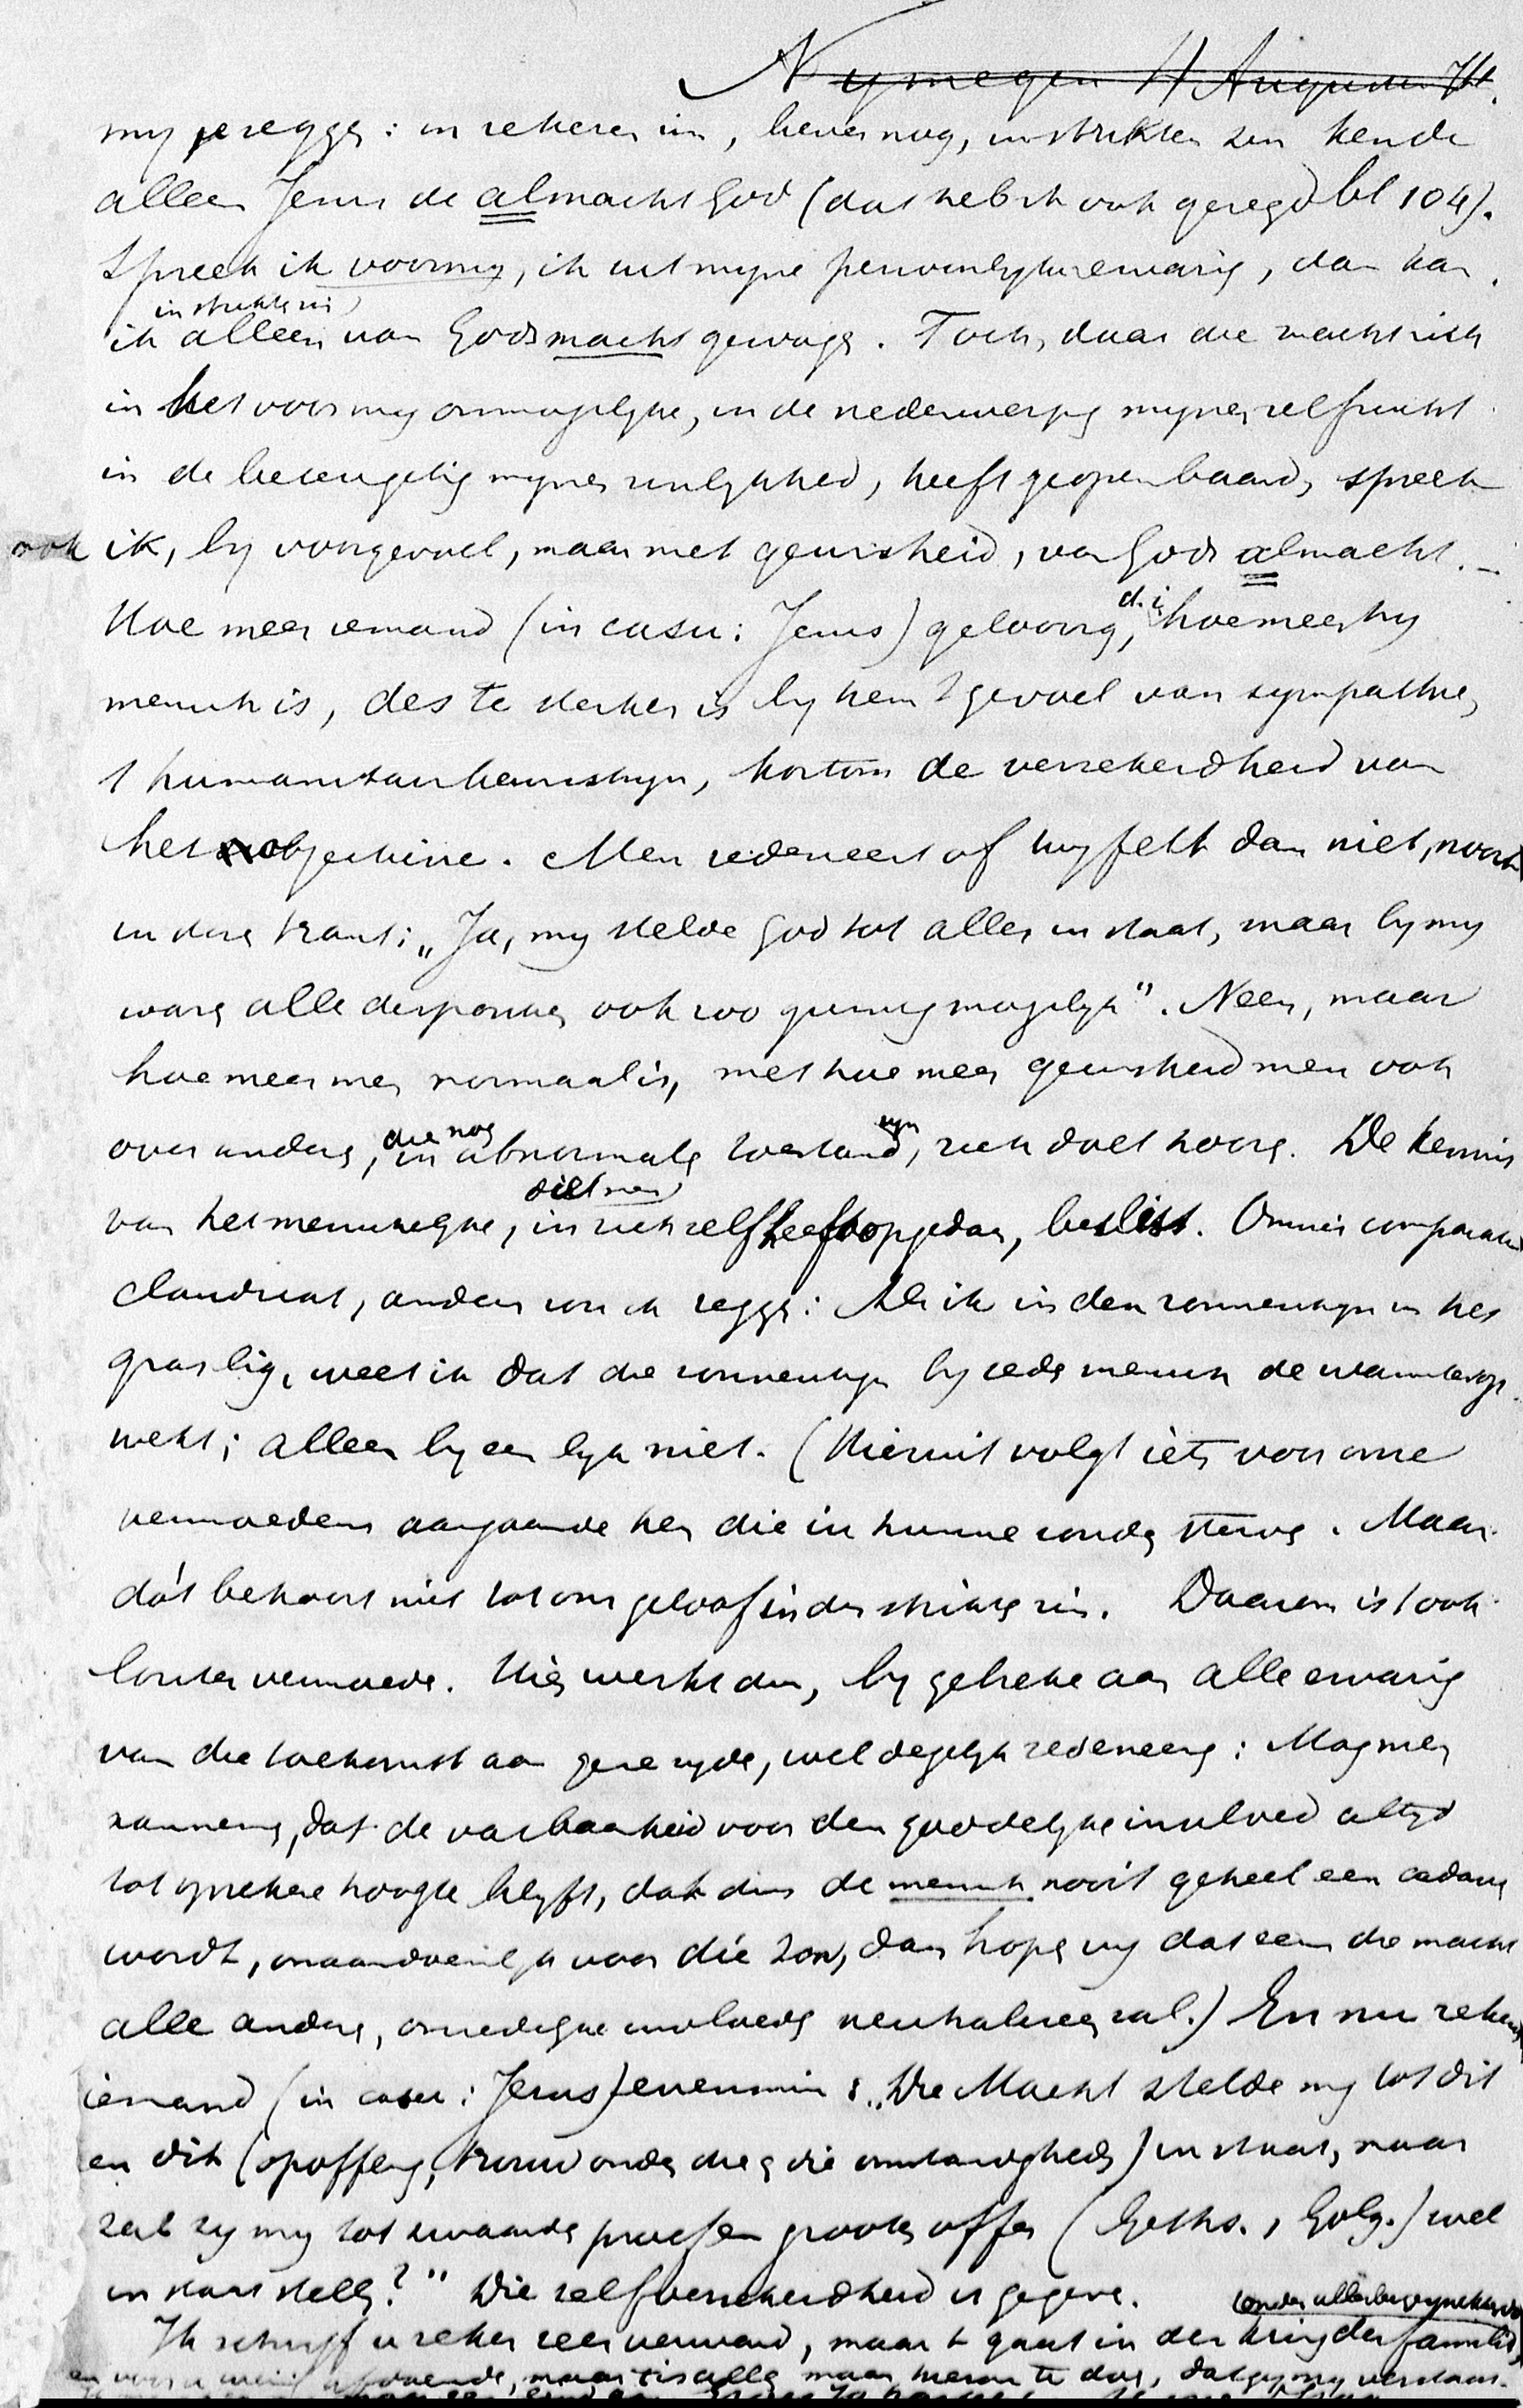 Nymegen 4 Augustus 74.
my zegge: in zekeren zin, liever nog, in strikten zin kende
alleen Jezus de almacht Gods (dat heb ik ook gezegd bl 104).
Spreek ik voor my, ik uit myne persoonlyke ervaring, dan kan
in strikten zin
ik alleen van Gods macht gewagen. Toch, daar die macht zich
in het voor my onmogelyke, in de nederwerping myner zelfzucht
in de beteugeling myner zinlykheid, heeft geopenbaard, spreek
ook ik, by voorgevoel, maar met gewisheid, van Gods almacht. –
d. i.
Hoe meer iemand (in casu: Jezus) geloovig, hoe meer hy
mensch is, des te sterker is by hem 't gevoel van sympathie,
't humaniteitsbewustzyn, kortom de verzekerdheid van
het objectieve. Men redeneert of twyfelt dan niet, noch
in dezen trant: „Ja, my stelde God tot alles in staat, maar by my
waren alle disposities ook zoo gunstig mogelyk". Neen, maar
hoe meer men normaal is, met hoe meer gewisheid men ook
die nog zyn
over anderen, in abnormalen toestand, zich doet hooren. De kennis
die men
van het menschelyke, in zich zelf heeft opgedaan, beslist. Omnis comparatio
claudicat, anders zou ik zeggen: Als ik in den zonneschyn in het
gras lig, weet ik dat die zonneschyn by ieder mensch de warmte op-
wekt; alleen by een lyk niet. (Hieruit volgt iets voor onze
vermoedens aangaande hen die in hunne zonden sterven. Maar
dát behoort niet tot ons geloof in den strikten zin. Daarom is 't ook
louter vermoeden. Hier werkt dan, by gebreke aan alle ervaring
van die toekomst aan gene zyde, wel degelyk redeneering: Mag men
aannemen, dat de vatbaarheid voor den goddelyken invloed altyd
tot op zekere hoogte blyft, dat dus de mensch nooit geheel een cadaver
wordt, onaandoenlyk voor díe zon, dan hopen wy dat eens die macht
alle andere, onzedelyke invloeden neutraliseeren zal.) En nu rekent
iemand (in casu: Jezus) evenmin: „Die Macht stelde my tot dit
en dit (opoffering, trouw onder die en die omstandigheden) in staat, maar
zal zy my tot zwaarder proef en grooter offer (Geths., Golg.) wel
in staat stellen?" Die zelfverzekerdheid is gegeven.
zonder allerlei
Ik schryf u zeker zeer verward, maar 't gaat in den kring der familie,
en voor u weinig afdoende, maar 't is alleen maar hierom te doen, dat gy my verstaat.